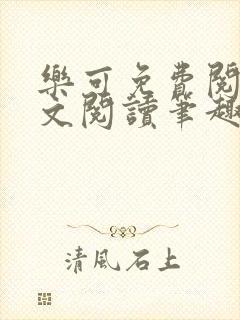 樂可免費閱
文閱讀筆趣
清風石上